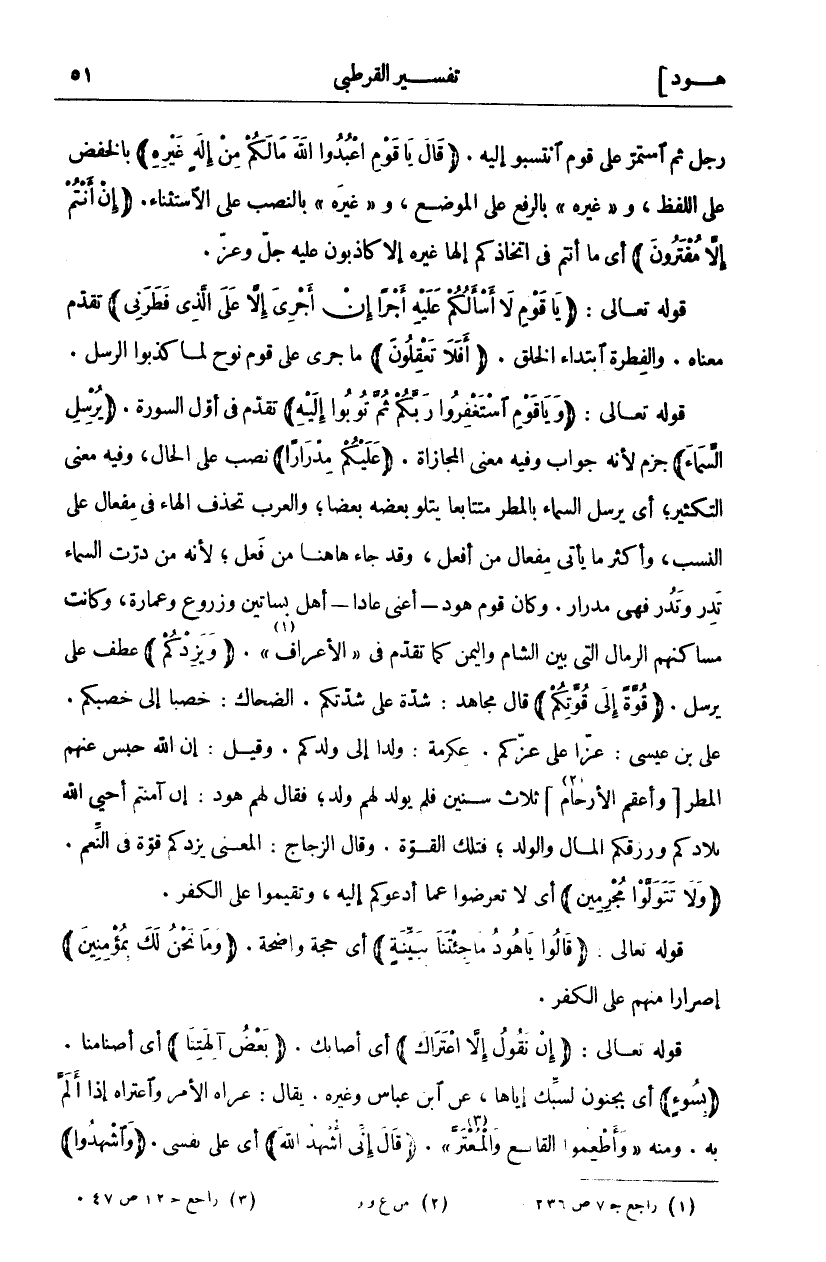 هــود] تفســير القرطبي ٥١
رجل ثم ٱستمرّ على قوم ٱنتسبو إليه . ﴿ قَالَ يَا قَوْمِ اعْبُدُوا اللهَ مَالَكُمْ مِنْ إِلَهٍ غَيْرِهِ ﴾ بالخفض
على اللفظ ، و « غيره » بالرفع على الموضــع ، و « غيرَه » بالنصب على الآستثناء. ﴿ إِنْ أَنْتُمْ
إِلَّا مُفْتَرُونَ ﴾ أى ما أنتم فى اتخاذكم إلها غيره إلا كاذبون عليه جلّ وعزّ .
قوله تعــالى : ﴿ يَا قَوْمِ لَا أَسْأَلُكُمْ عَلَيْهِ أَجْرًا إِنْ أَجْرِىَ إِلَّا عَلَى الَّذِى فَطَرَنِى ﴾ تقدّم
معناه . والفِطرة ٱبتداء الخلق . ﴿ أَفَلَا تَعْقِلُونَ ﴾ ما جرى على قوم نوح لمــا كذبوا الرسل .
قوله تعــالى : ﴿ وَيَاقَوْمِ ٱسْتَغْفِرُوا رَبَّكُمْ ثُمَّ تُوبُوا إِلَيْهِ ﴾ تقدّم فى أوّل السورة . ﴿ يُرْسِلِ
السَّمَاءَ ﴾ جزم لأنه جواب وفيه معنى المجازاة . ﴿ عَلَيْكُمْ مِدْرَارًا ﴾ نصب على الحال، وفيه معنى
التكثير؛ أى يرسل السماء بالمطر متتابعا يتلو بعضه بعضا؛ والعرب تحذف الهاء فى مِفعال على
النسب ، وأكثر ما يأتى مِفعال من أفعل ، وقد جاء هاهنــا من فَعل ؛ لأنه من درّت السماء
تَدِر وتَدُر فهى مدرار . وكان قوم هود — أعنى عادا — أهل بساتين وزروع وعمارة، وكانت
مساكنهم الرمال التى بين الشام واليمن كما تقدّم فى « الأعراف(١) » . ﴿ وَيَزِدْكُمْ ﴾ عطف على
يرسل . ﴿ قُوَّةً إِلَى قُوَّتِكُمْ ﴾ قال مجاهد : شدّة على شدّتكم . الضحاك : خصبا إلى خصبكم .
على بن عيسى : عزّا على عزّكم . عكرمة : ولدا إلى ولدكم . وقيــل : إن الله حبس عنهم
المطر [ وأعقم الأرحام(٢) ] ثلاث ســنين فلم يولد لهم ولد؛ فقال لهم هود : إن آمنتم أحيي الله
بلادكم ورزقكم المــال والولد ؛ فتلك القــوّة . وقال الزجاج : المعــنى يزدكم قوّة فى النَّعم .
﴿ وَلَا تَتَوَلَّوْا مُجْرِمِينَ ﴾ أى لا تعرضوا عما أدعوكم إليه ، وتقيموا على الكفر .
قوله تعالى : ﴿ قَالُوا يَاهُودُ مَا جِئْتَنَا بِبَيِّنَةٍ ﴾ أى حجة واضحة . ﴿ وَمَا نَحْنُ لَكَ بِمُؤْمِنِينَ ﴾
إصرارا منهم على الكفر .
قوله تعــالى : ﴿ إِنْ نَقُولُ إِلَّا اعْتَرَاكَ ﴾ أى أصابك . ﴿ بَعْضُ آلِهَتِنَا ﴾ أى أصنامنا .
﴿ بِسُوءٍ ﴾ أى بجنون لسبّك إياها ، عن ٱبن عباس وغيره . يقال : عراه الأمر وٱعتراه إذا أَلَمَّ
به . ومنه « وَأَطْعِمُوا القانِــع وَالْمُعْتَرَّ(٣) » . ﴿ قَالَ إِنِّى أُشْهِدُ اللهَ ﴾ أى على نفسى . ﴿ وَٱشْهَدُوا ﴾
(١) راجع جـ ٧ ص ٢٣٦ (٢) من ع و و (٣) راجع جـ ١٢ ص ٤٧ .